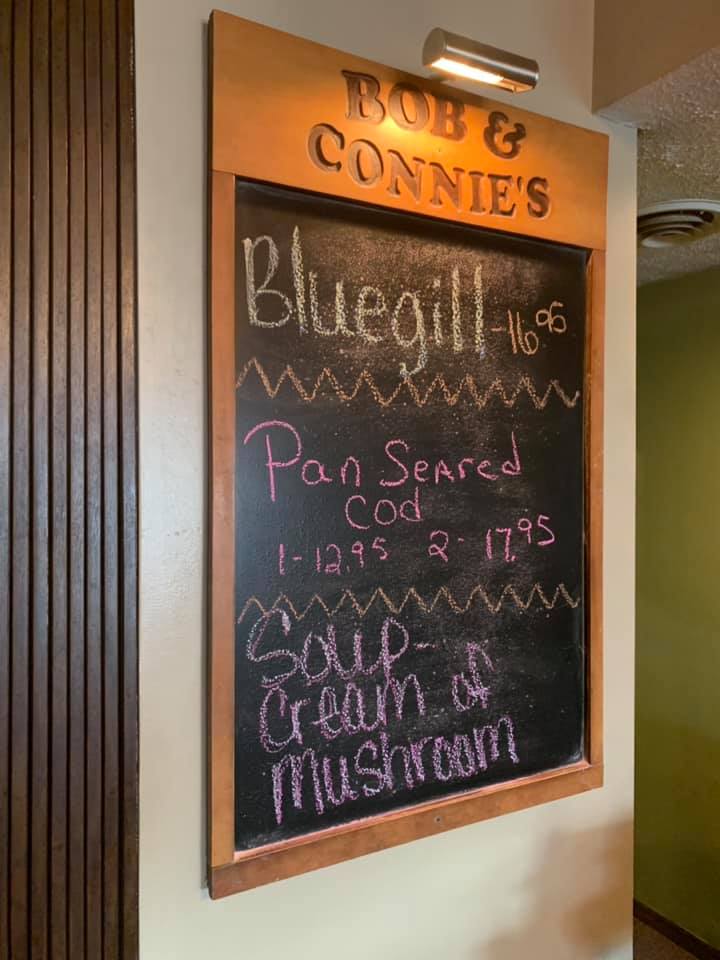 BOB &
CONNIE'S
Bluegill - 16 95
Pan Seared
Cod
1 - 12.95 2 - 17.95
Soup -
Cream of
mushroom